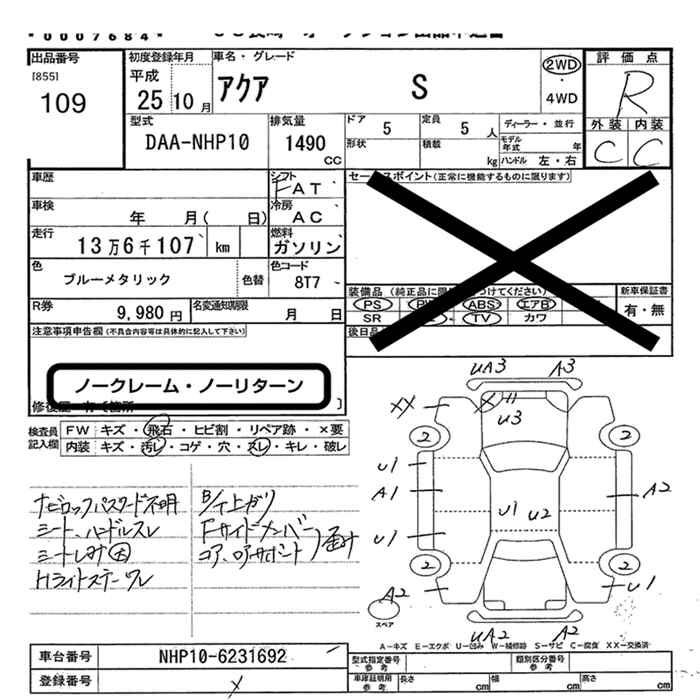 *0007684*
出品番号
[855]
109
初度登録年月
平成
25 10 月
車名・グレード
アクア S
2WD
4WD
評価点
R
外装 内装
C C
型式
DAA-NHP10
排気量
1490
CC
ドア 5
定員 5 人
形状
積載 kg
ディーラー・並行
モデル年式 年
ハンドル 左・右
車歴
シフト
FAT
セールスポイント(正常に機能するものに限ります)
車検
年 月( 日)
冷房
AC
走行
13万6千107 km
燃料
ガソリン
色
ブルーメタリック
色替
色コード
8T7
装備品
新車保証書
PS
ABS エアB
有・無
SR
TV カワ
R券
9,980 円
名変通知期限
月 日
後日品
注意事項申告欄(不具合内容等は具体的に記入して下さい)
ノークレーム・ノーリターン
検査員
記入欄
FW キズ・飛石・ヒビ割・リペア跡・×要
内装 キズ・汚レ・コゲ・穴・スレ・キレ・破レ
ナビロックパスワード不明
シート、ハンドルスレ
シートしみ大
Hライトステーワレ
B/仕上がり
Fサイドメンバー
コア、ロアサポート
歪み
UA3 A3
XX
U3
2 2
U1
A1
U1 U2
A2
U1
2 2
A2
U1
UA2 A2
スペア
A-キズ E-エクボ U-凹み W-補修跡 S-サビ C-腐食 XX-交換済
車台番号
NHP10-6231692
登録番号
型式指定番号
参考
類別区分番号
参考
車庫証明用
参考
長さ cm
幅 cm
高さ cm